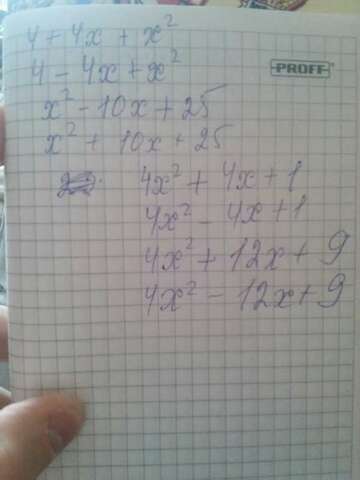 4 + 4x + x²
4 - 4x + x²
PROFF
x² - 10x + 25
x² + 10x + 25
4x² + 4x + 1
4x² - 4x + 1
4x² + 12x + 9
4x² - 12x + 9